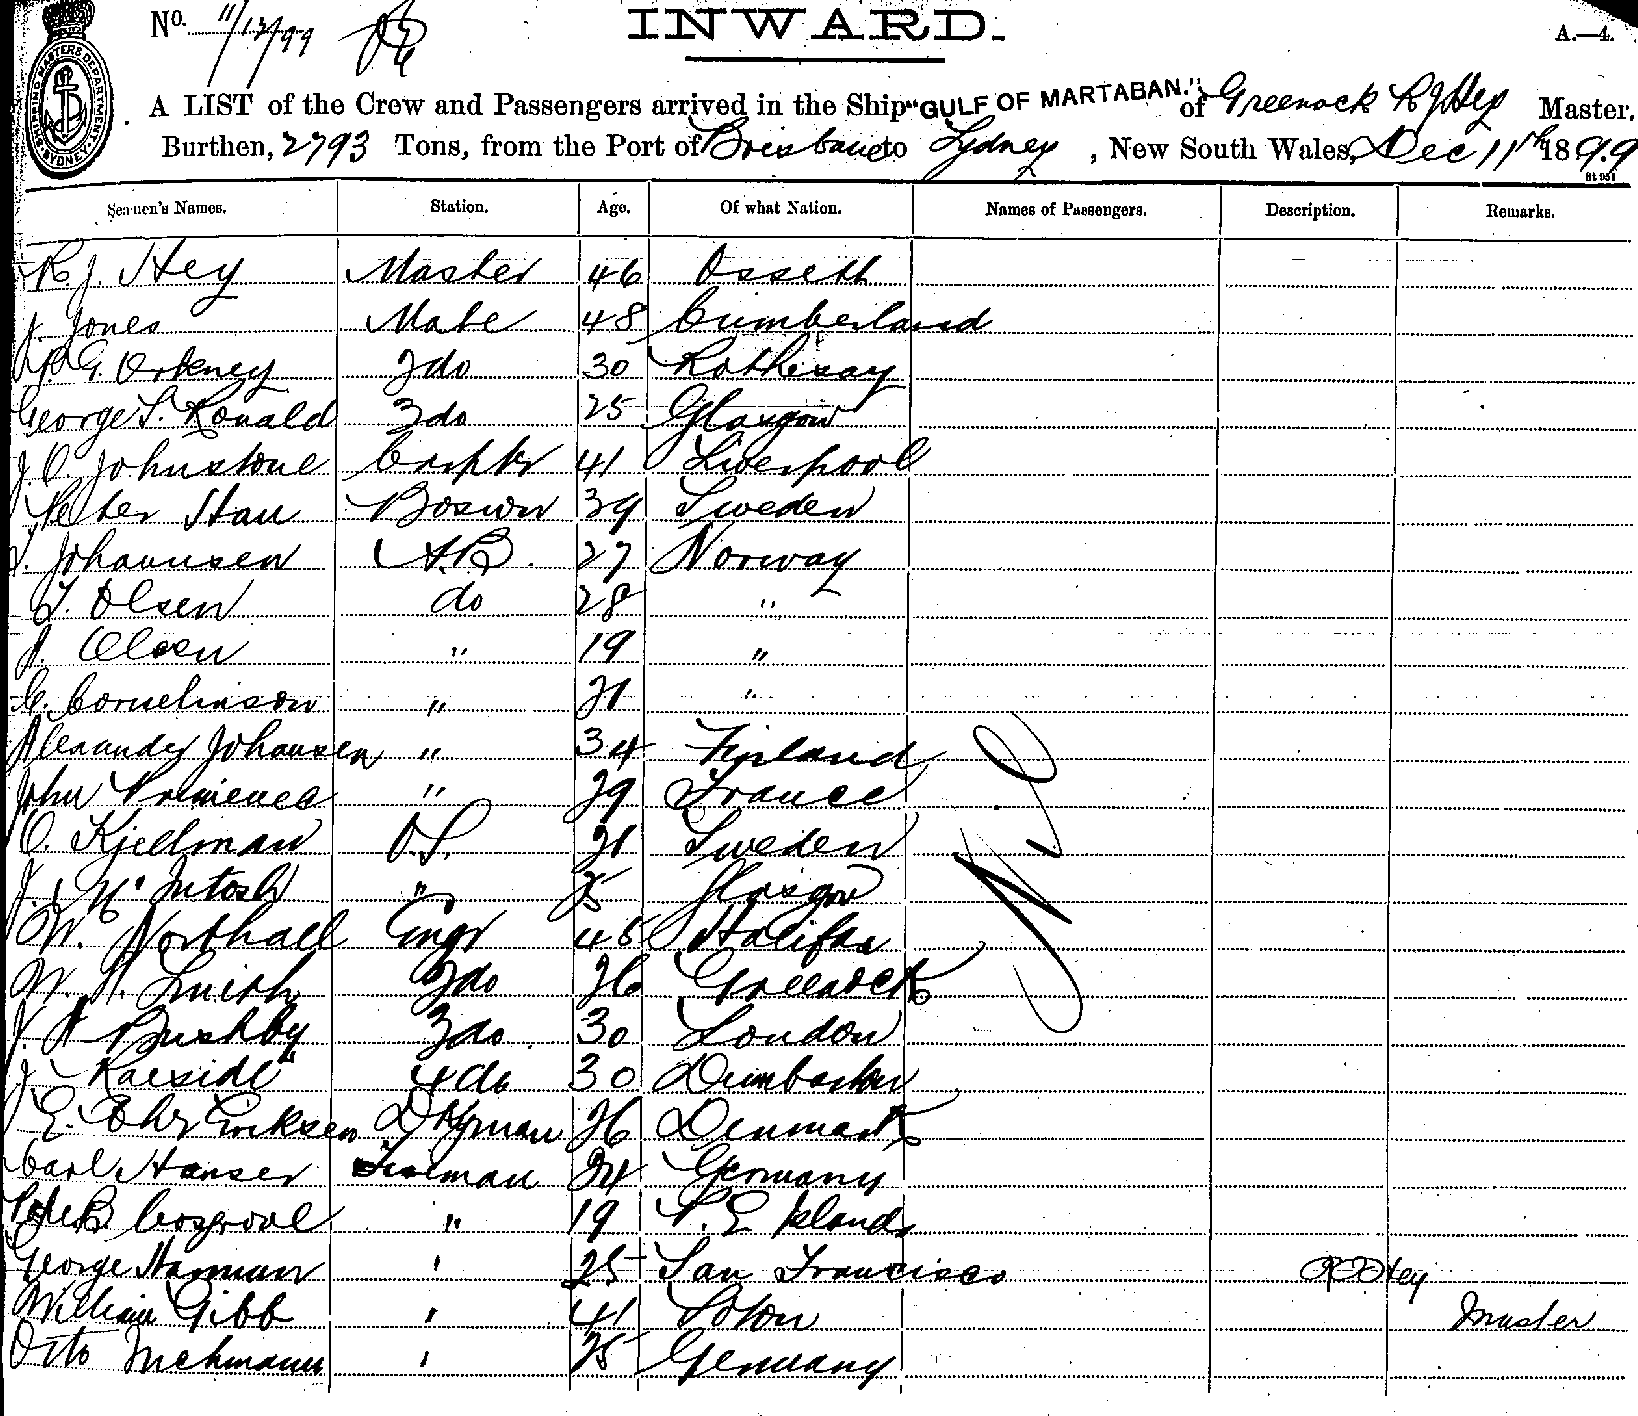 No. 11/12/99
INWARD.
A.—4.
SHIPPING MASTERS DEPARTMENT SYDNEY
A LIST of the Crew and Passengers arrived in the Ship "GULF OF MARTABAN." of Greenock R J Hey Master,
Burthen, 2793 Tons, from the Port of Brisbane to Sydney, New South Wales, Dec 11th 1899
Seamen's Names. Station. Age. Of what Nation. Names of Passengers. Description. Remarks.
R J. Hey Master 46 Ossett
J. Jones Mate 48 Cumberland
G. Orkney 2do 30 Rothesay
George S. Ronald 3do 25 Glasgow
J. C. Johnstone Carptr 41 Liverpool
Peter Stau Boswn 39 Sweden
Johannsen A.B. 27 Norway
T. Olsen do 28 "
J. Olsen " 19 "
C. Cornelinson " 21 "
Alexander Johansen " 34 Finland
John " 29 France
O. Kjellman O.S. 21 Sweden
J. McIntosh " 25 Glasgow
W. Northall Engr 45 Halifax
W. H. Smith 2do 26 Greenock
J. H Bushby 3do. 30 London
J. Raeside 4do 30 Dumbarton
E. Eriksen Dkyman 26 Denmark
Carl Hanser Fireman 24 Germany
Cosgrove " 19 P. E Islands
George Harman " 25 San Francisco
William Gibb " 41 Soton
Otto " 25 Germany
Nil
R J Hey
Master